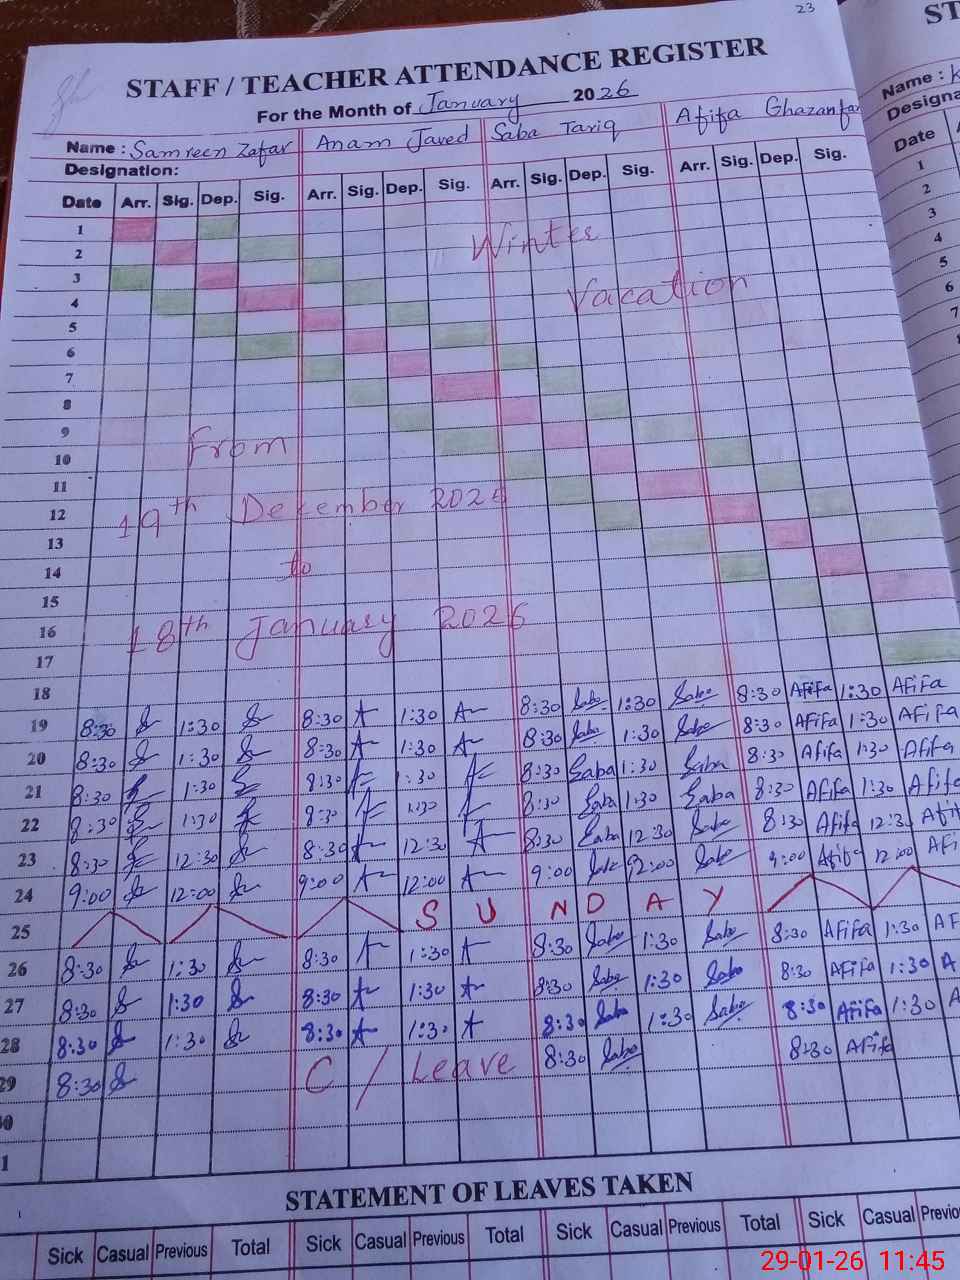 23
STAFF / TEACHER ATTENDANCE REGISTER
For the Month of January 2026
ST
Name : Samreen Zafar Anam Javed Saba Tariq Afifa Ghazanfar
Name : K
Designation:
Designa
Date Arr. Sig. Dep. Sig. Arr. Sig. Dep. Sig. Arr. Sig. Dep. Sig. Arr. Sig. Dep. Sig.
Date A
1
2
3
4
5
6
7
8
9
10
11
12
13
14
15
16
17
Winter
Vacation
From
19th December 2025
to
18th January 2026
18
19 8:30 1:30 8:30 1:30 8:30 Saba 1:30 Saba 8:30 Afifa 1:30 Afifa
20 8:30 1:30 8:30 1:30 8:30 Saba 1:30 Saba 8:30 Afifa 1:30 Afifa
21 8:30 1:30 8:30 1:30 8:30 Saba 1:30 Saba 8:30 Afifa 1:30 Afifa
22 8:30 1:30 8:30 1:30 8:30 Saba 1:30 Saba 8:30 Afifa 1:30 Afifa
23 8:30 12:30 8:30 12:30 8:30 Saba 12:30 Saba 8:30 Afifa 12:30 Afif
24 9:00 12:00 9:00 12:00 9:00 12:00 Saba 9:00 Afifa 12:00 Afi
25 SUNDAY
26 8:30 1:30 8:30 1:30 8:30 Saba 1:30 Saba 8:30 Afifa 1:30 AF
27 8:30 1:30 8:30 1:30 8:30 Saba 1:30 Saba 8:30 Afifa 1:30 A
28 8:30 1:30 8:30 1:30 8:30 Saba 1:30 Saba 8:30 Afifa 1:30 A
29 8:30 C / Leave 8:30 Saba 8:30 Afifa
30
1
STATEMENT OF LEAVES TAKEN
Sick Casual Previous Total Sick Casual Previous Total Sick Casual Previous Total Sick Casual Previo
29-01-26 11:45